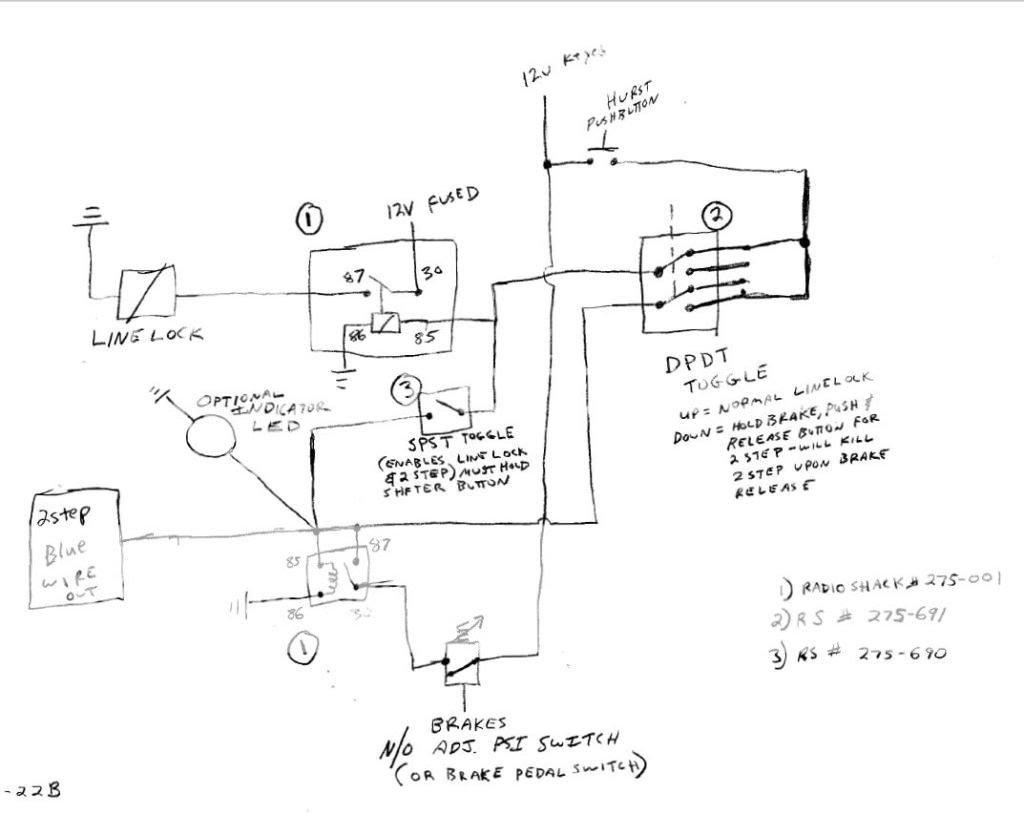 12v Keyed
HURST
PUSHBUTTON
1
12V FUSED
2
87
30
86
85
LINE LOCK
DPDT
TOGGLE
UP = NORMAL LINELOCK
DOWN = HOLD BRAKE, PUSH &
RELEASE BUTTON FOR
2 STEP - WILL KILL
2 STEP UPON BRAKE
RELEASE
OPTIONAL
INDICATOR
LED
3
SPST TOGGLE
(ENABLES LINE LOCK
& 2 STEP) MUST HOLD
SHFTER BUTTON
2step
Blue
WIRE
OUT
85
87
86
30
1
1) RADIO SHACK # 275-001
2) RS # 275-691
3) RS # 275-690
BRAKES
N/O ADJ. PSI SWITCH
(OR BRAKE PEDAL SWITCH)
-22B